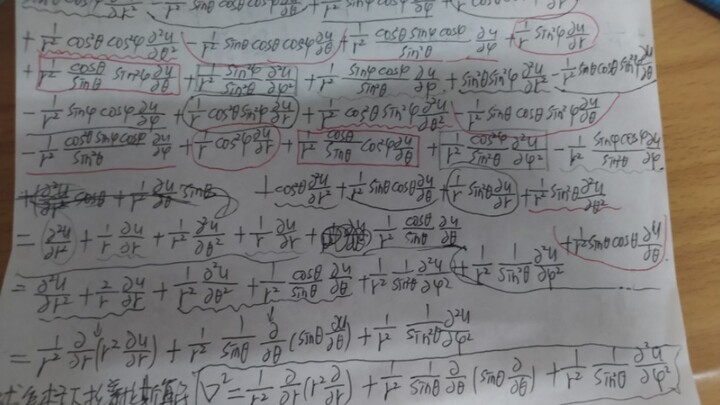 + 1/r² cos²θ cos²φ ∂²u/∂θ² 1/r² sinθ cosθ cos²φ ∂u/∂θ + 1/r² cosθ sinφ cosφ/sin²θ ∂u/∂φ + 1/r sin²φ ∂u/∂r
+ 1/r² cosθ/sinθ sin²φ ∂u/∂θ + 1/r² sin²φ/sin²θ ∂²u/∂φ² + 1/r² sinφ cosφ/sin²θ ∂u/∂φ + sin²θ sin²φ ∂²u/∂r² - 1/r² sinθ cosθ sin²φ ∂u/∂θ
- 1/r² sinφ cosφ ∂u/∂φ + 1/r cos²θ sin²φ ∂u/∂r + 1/r² cos²θ sin²φ ∂²u/∂θ² 1/r² sinθ cosθ sin²φ ∂u/∂θ
- 1/r² cos²θ sinφ cosφ/sin²θ ∂u/∂φ + 1/r cos²φ ∂u/∂r + 1/r² cosθ/sinθ cos²φ ∂u/∂θ + 1/r² cos²φ/sin²θ ∂²u/∂φ² - 1/r² sinφ cosφ/sin²θ ∂u/∂φ
+ cos²θ ∂²u/∂r² + 1/r² sinθ cosθ ∂u/∂θ + 1/r sin²θ ∂u/∂r + 1/r² sin²θ ∂²u/∂θ²
+ 1/r² sinθ cosθ ∂u/∂θ
= ∂²u/∂r² + 1/r ∂u/∂r + 1/r² ∂²u/∂θ² + 1/r ∂u/∂r + 1/r² cosθ/sinθ ∂u/∂θ
+ 1/r² 1/sin²θ ∂²u/∂φ²
= ∂²u/∂r² + 2/r ∂u/∂r + 1/r² ∂²u/∂θ² + 1/r² cosθ/sinθ ∂u/∂θ + 1/r² 1/sin²θ ∂²u/∂φ²
= 1/r² ∂/∂r (r² ∂u/∂r) + 1/r² 1/sinθ ∂/∂θ (sinθ ∂u/∂θ) + 1/r² 1/sin²θ ∂²u/∂φ²
∇² = 1/r² ∂/∂r (r² ∂/∂r) + 1/r² 1/sinθ ∂/∂θ (sinθ ∂/∂θ) + 1/r² 1/sin²θ ∂²u/∂φ²